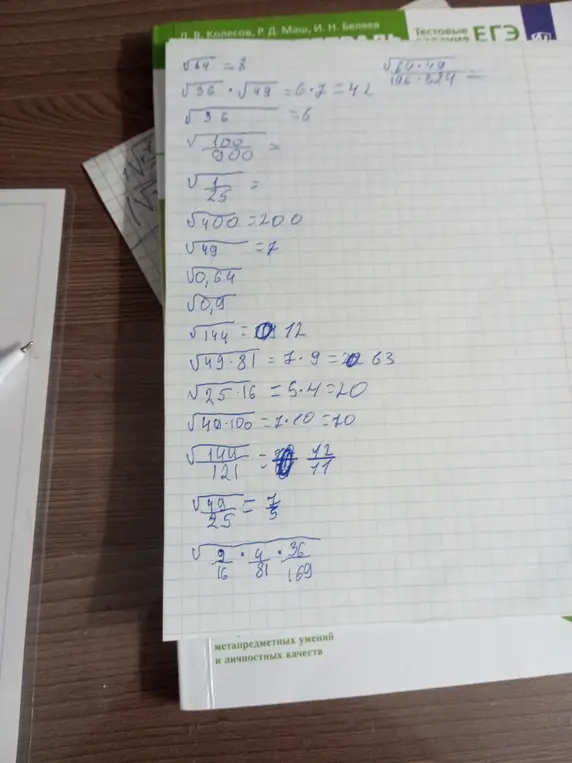 Л. В. Колесов, Р. Д. Маш, И. Н. Беляев
Тестовые
задания ЕГЭ
√64 = 8
√(64·49)/(196·324) =
√36 · √49 = 6·7 = 42
√36 = 6
√100/900 =
√1/25 =
√400 = 200
√49 = 7
√0,64
√0,9
√144 = 12
√49·81 = 7·9 = 63
√25·16 = 5·4 = 20
√49·100 = 7·10 = 70
√144/121 = 12/11
√49/25 = 7/5
√9/16 · 4/81 · 36/169
метапредметных умений
и личностных качеств